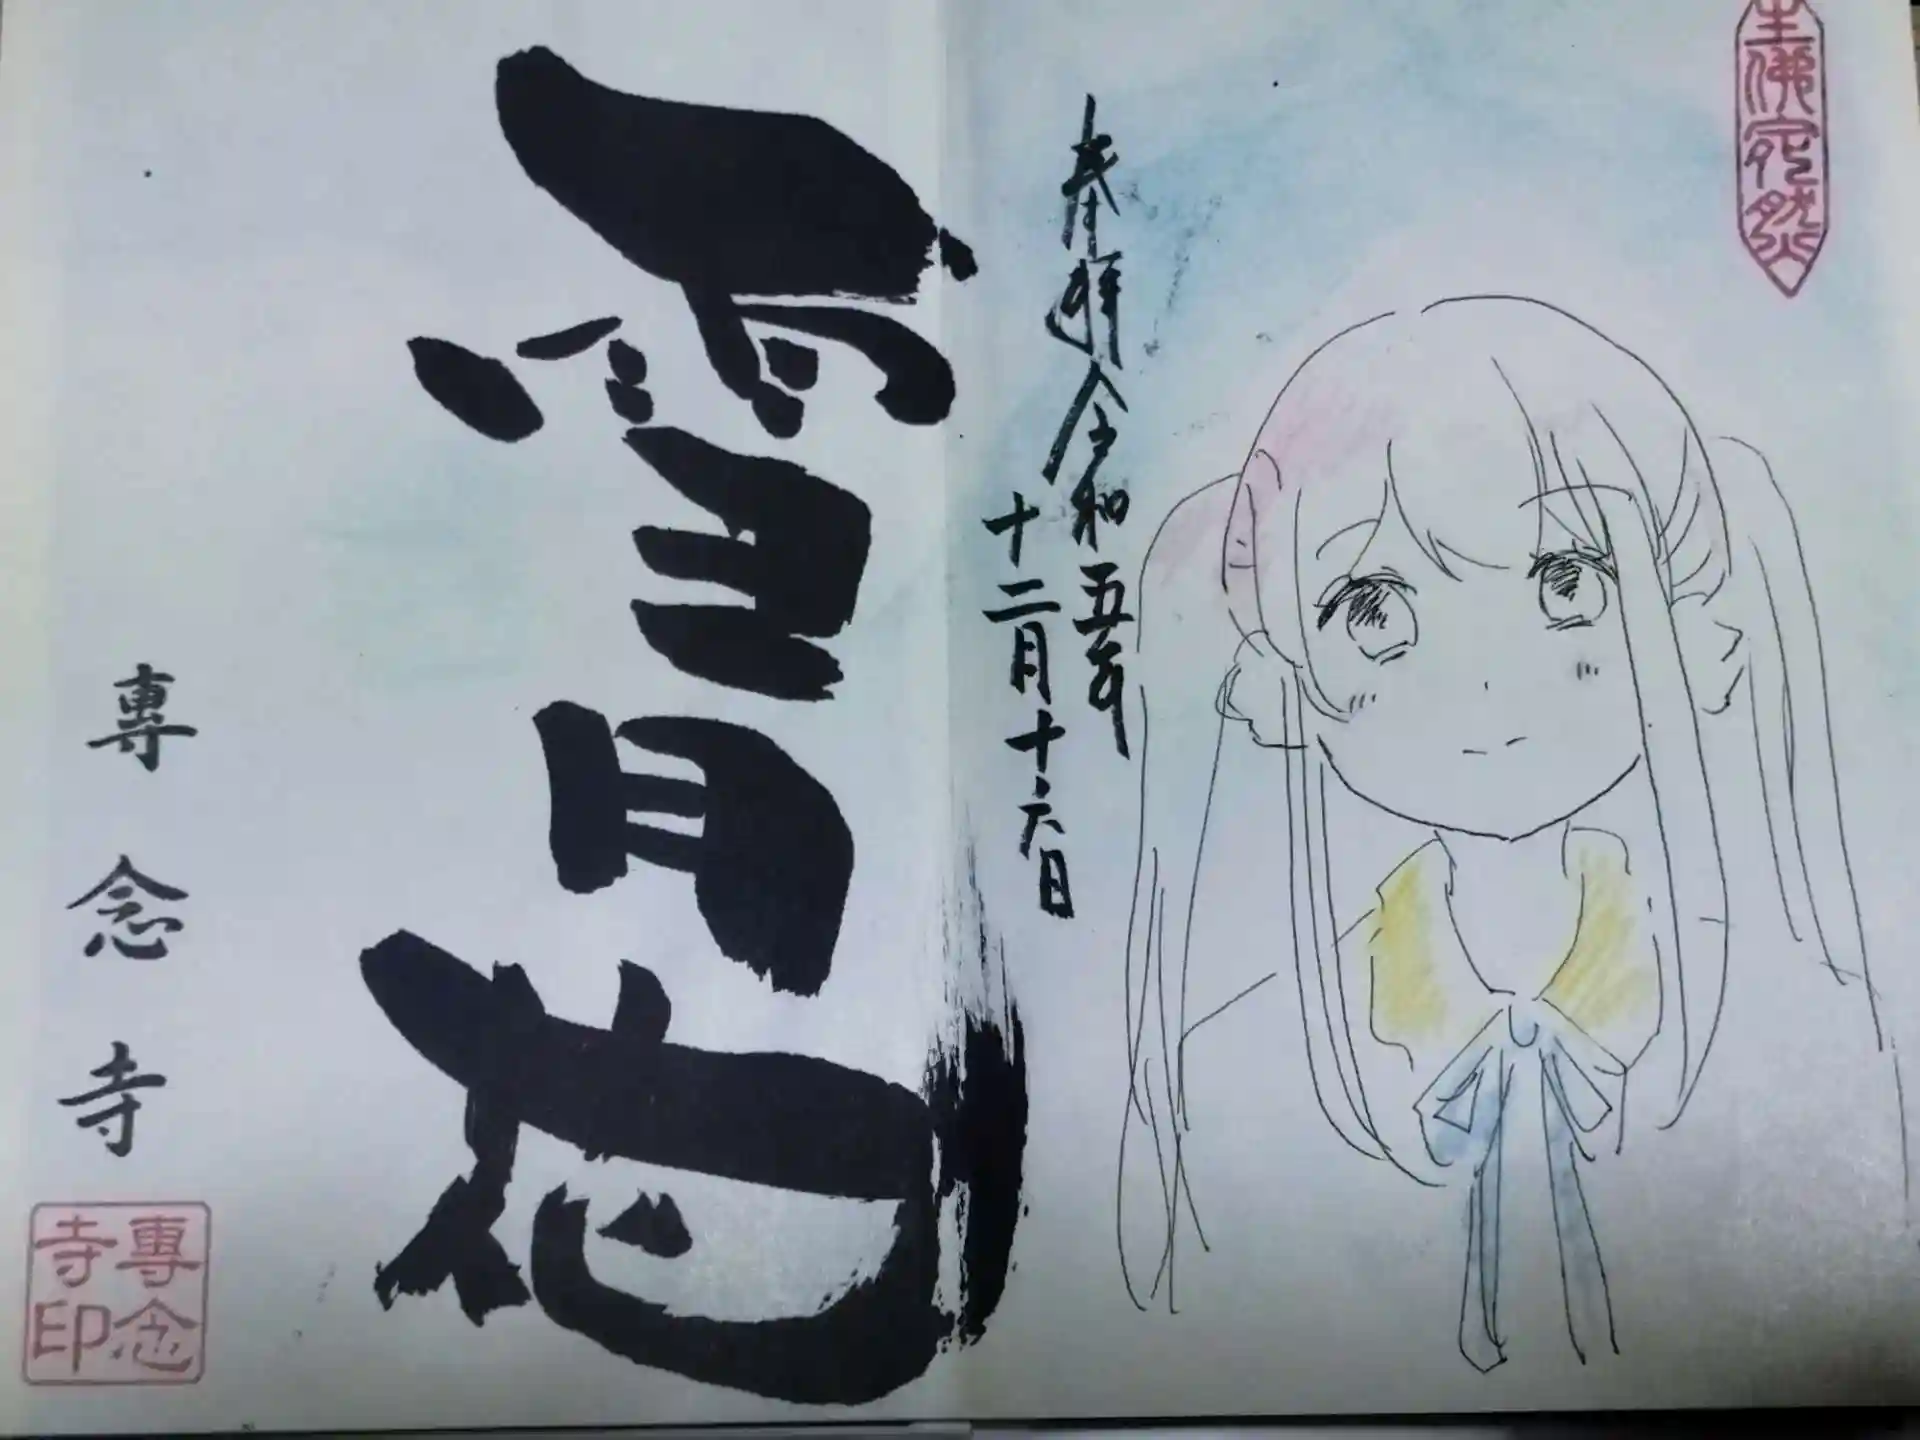 生佛宛然
奉拝令和五年
十二月十六日
雪月花
專念寺
專念
寺印